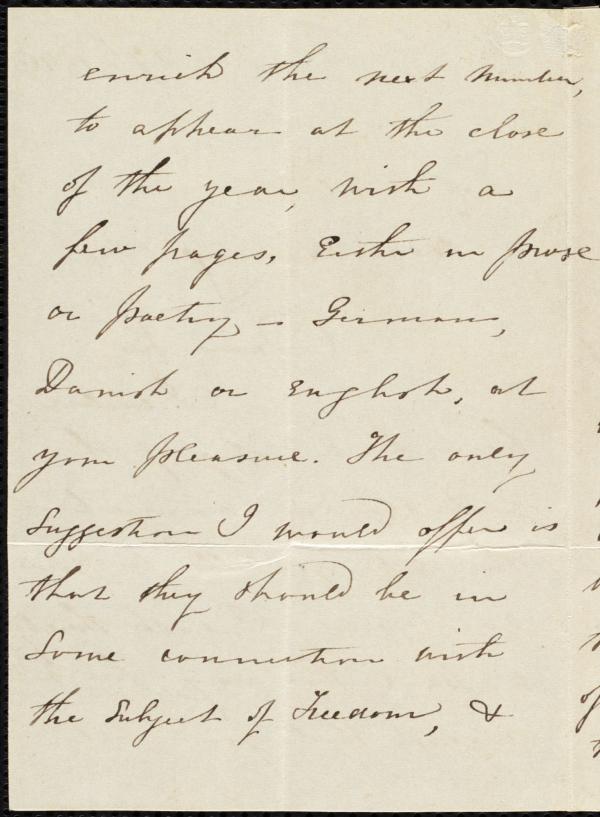 enrich the next number,
to appear at the close
of the year, with a
few pages, Either in prose
or poetry – German,
Danish or English, at
your pleasure. The only
suggestion I would offer is
that they should be in
some connection with
the subject of Freedom, &